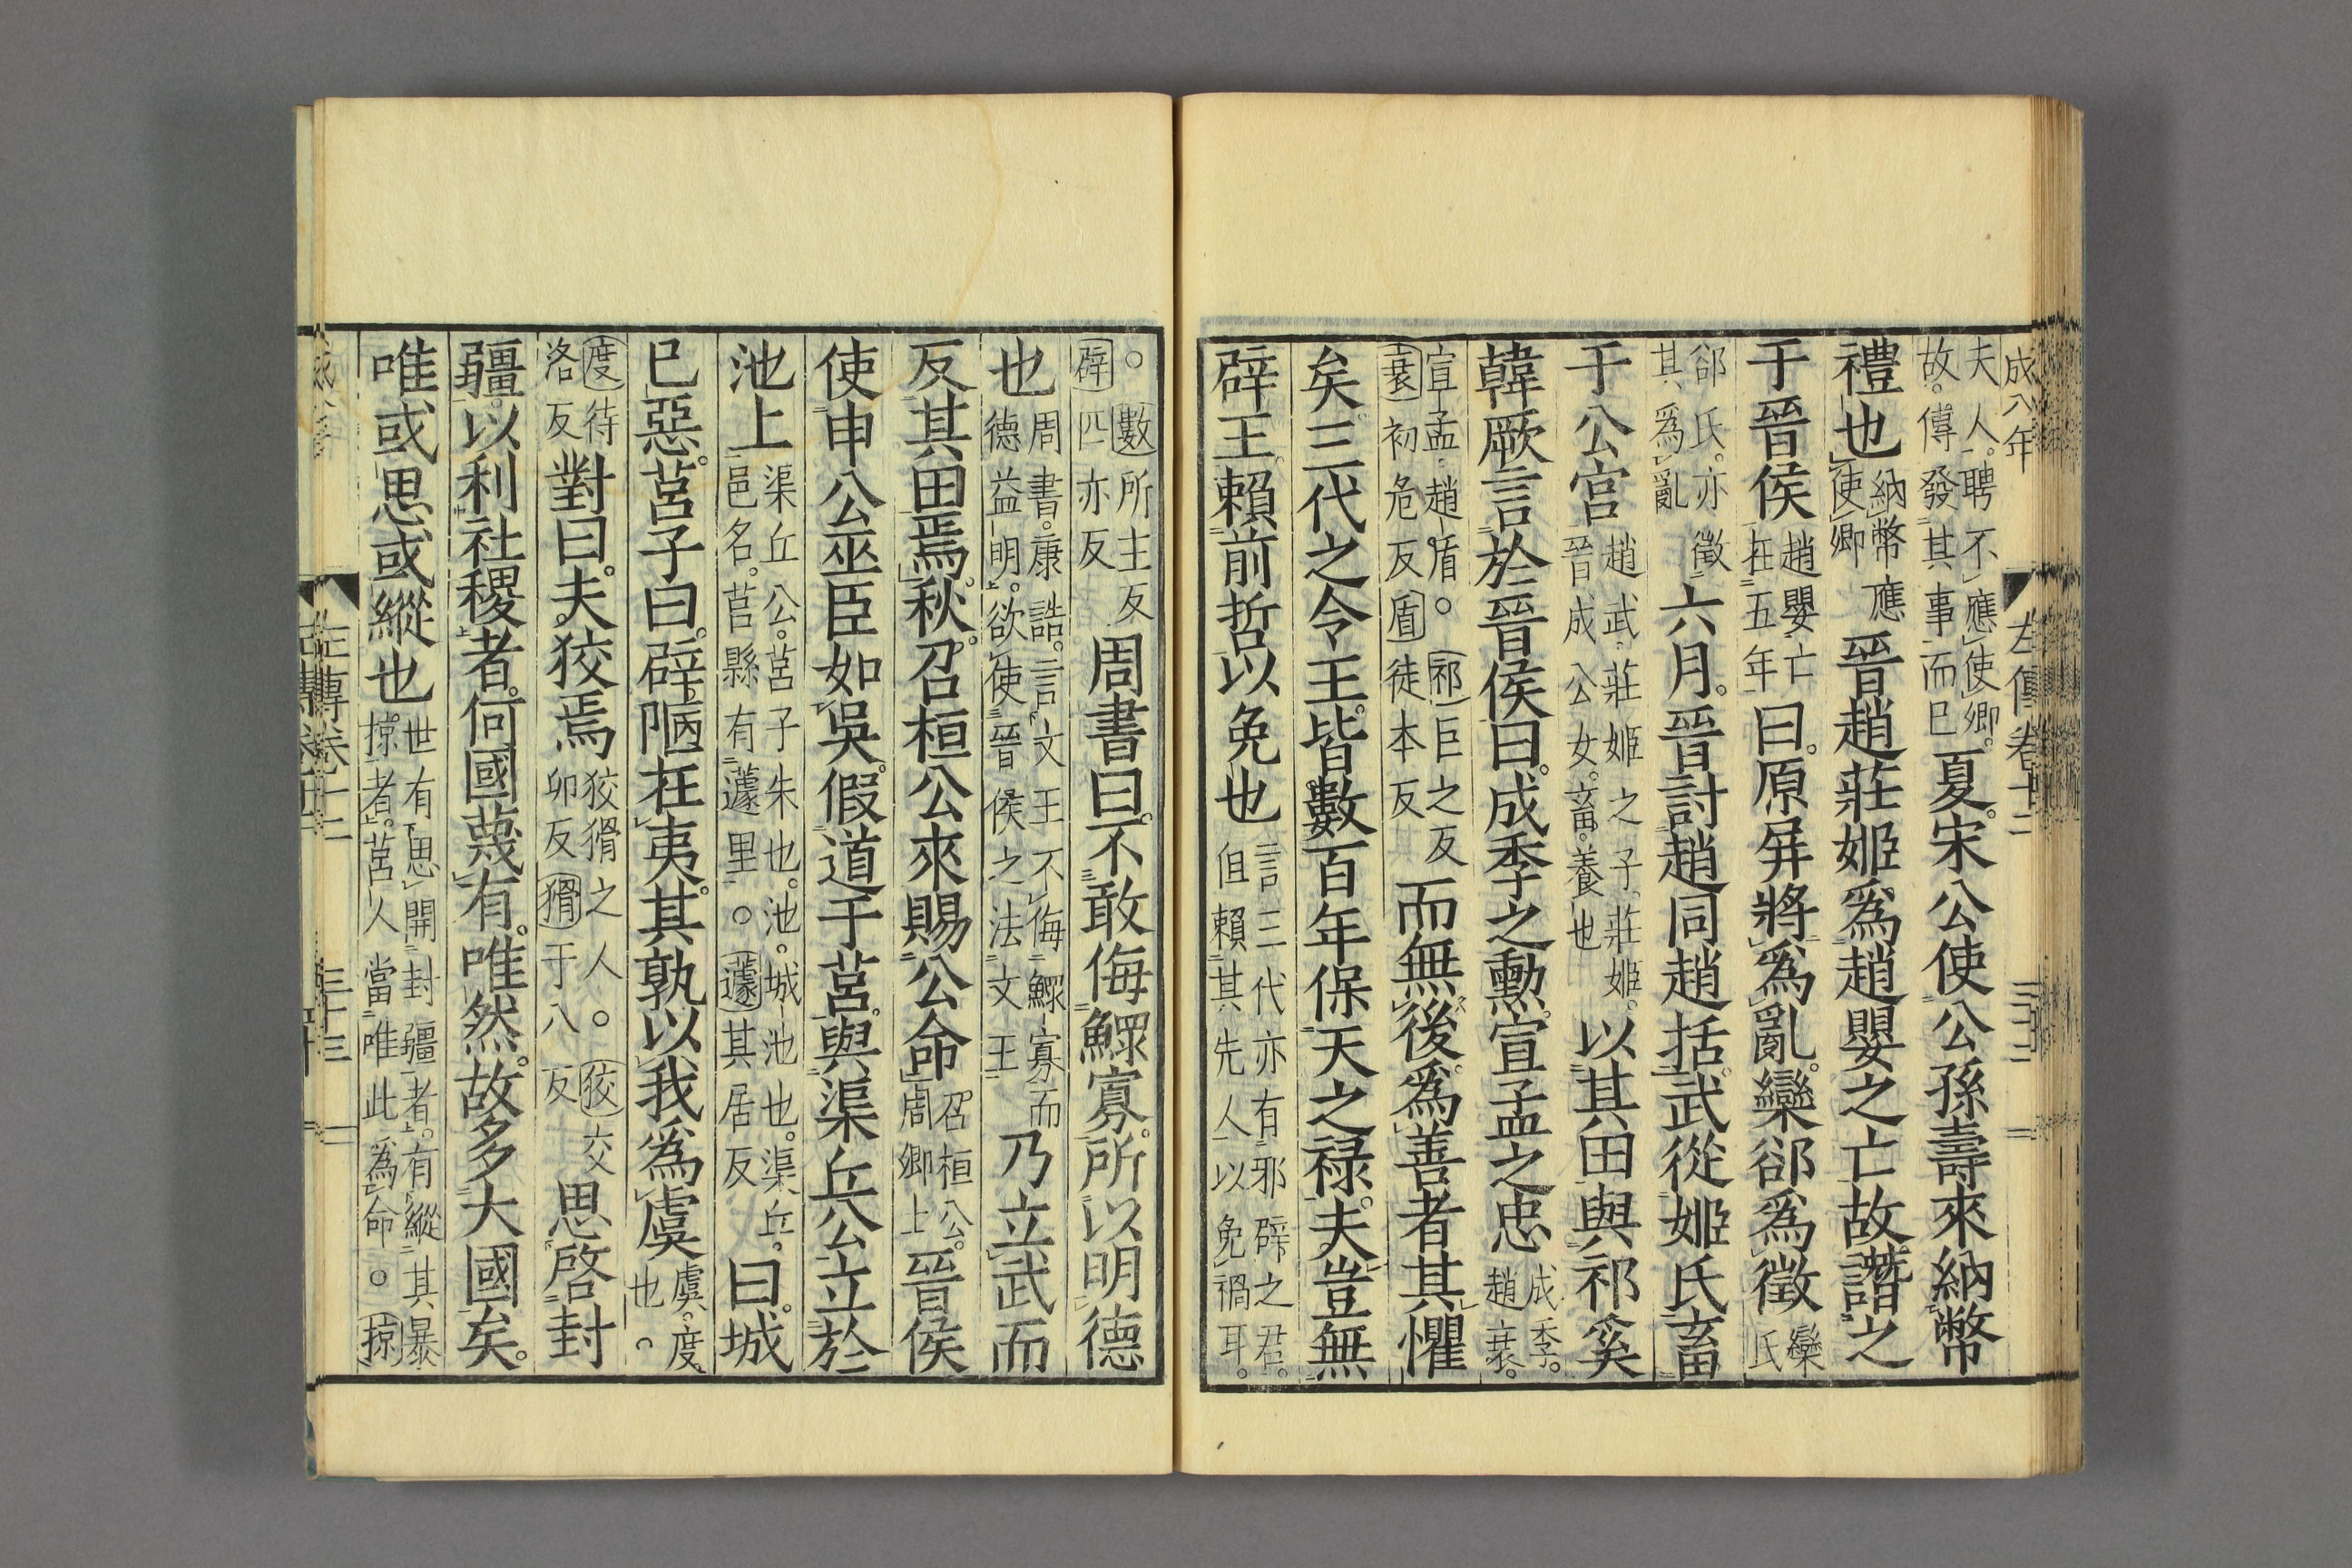 成八年 左傳卷十二 三十二
夫人聘不應使卿。故。傳發其事而已夏。宋公使公孫壽來納幣
禮也納幣應使卿晉趙莊姬爲趙嬰之亡故譖之
于晉侯趙嬰亡在五年曰。原屏將爲亂。欒郤爲徵欒氏
郤氏。亦徵其爲亂六月。晉討趙同趙括。武從姬氏畜
于公宮趙武。莊姬之子。莊姬。晉成公女。畜。養也以其田與祁奚
韓厥言於晉侯曰。成季之勳。宣孟之忠成季。趙衰。
宣孟。趙盾。○祁巨之反衰初危反盾徒本反而無後。爲善者其懼
矣。三代之令王。皆數百年保天之祿。夫豈無
辟王。賴前哲以免也言三代亦有邪辟之君。但賴其先人以免禍耳。
○數所主反辟匹亦反周書曰。不敢侮鰥寡。所以明德
也周書。康誥。言文王不侮鰥寡而德益明。欲使晉侯之法文王乃立武而
反其田焉。秋。召桓公來賜公命召桓公。周卿士晉侯
使申公巫臣如吳。假道于莒。與渠丘公立於
池上渠丘公。莒子朱也。池。城池也。渠丘。邑名。莒縣有蘧里。○蘧其居反曰。城
已惡。莒子曰。辟陋在夷。其孰以我爲虞虞。度也。○
度待洛反對曰。夫狡焉狡猾之人。○狡交卯反猾于八反思啓封
疆。以利社稷者。何國蔑有。唯然。故多大國矣。
唯或思或縱也世有思開封疆者。有縱其暴掠者。莒人當唯此爲命。○掠
左傳卷十二 三十三